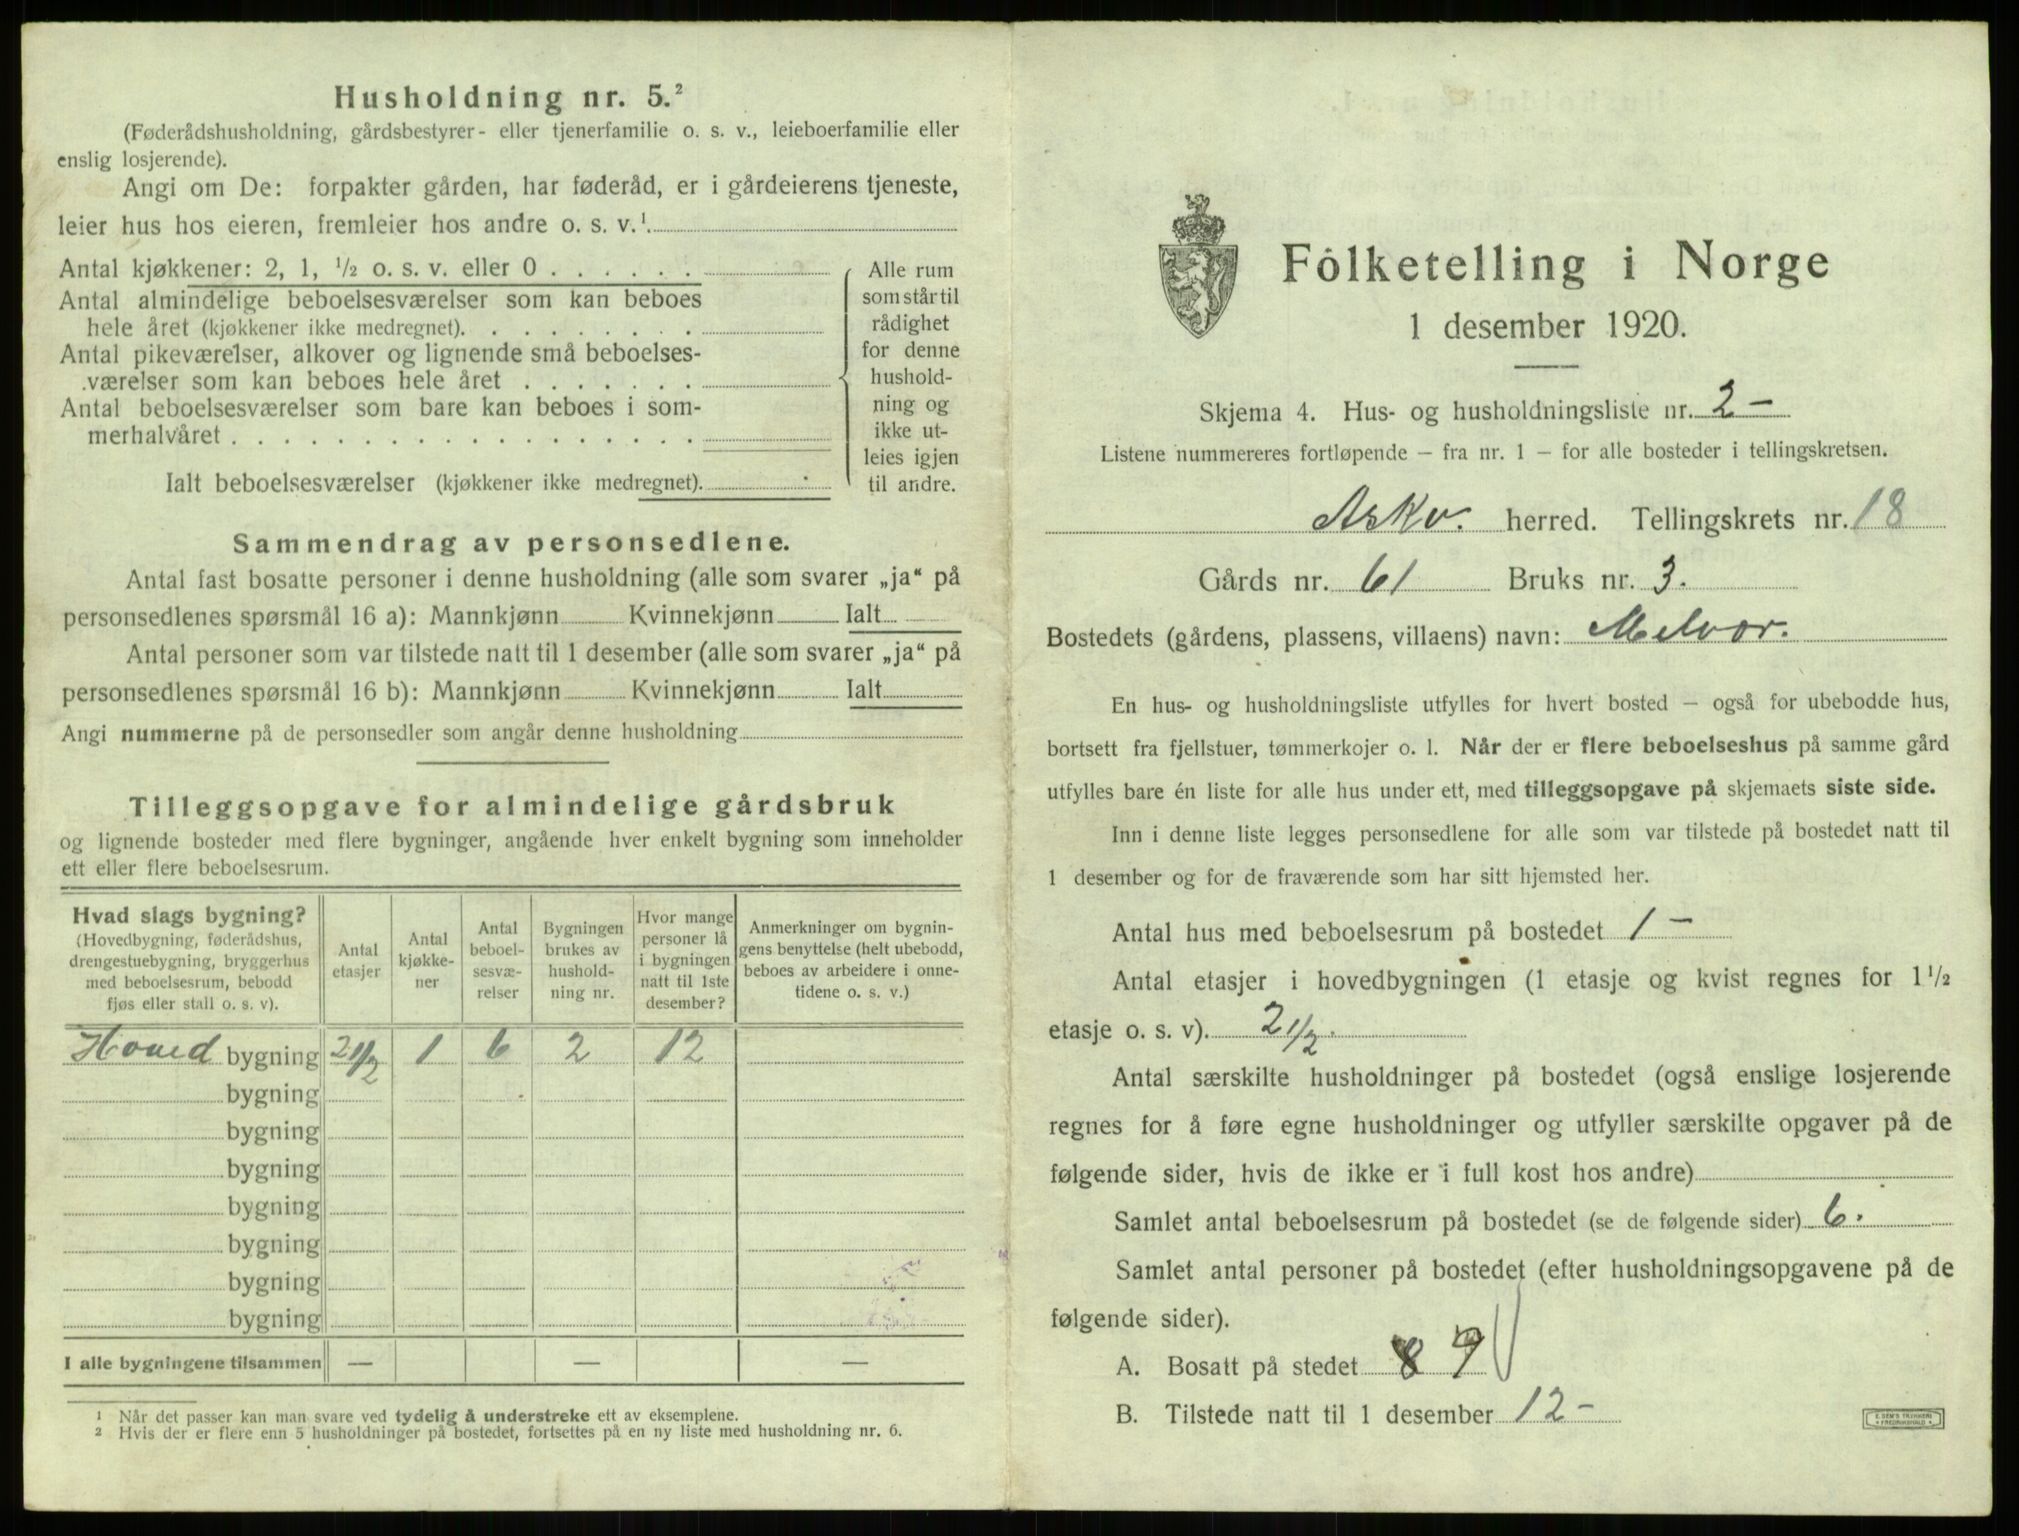 Husholdning nr. 5.²
(Føderådshusholdning, gårdsbestyrer- eller tjenerfamilie o. s. v., leieboerfamilie eller
enslig losjerende).
Angi om De: forpakter gården, har føderåd, er i gårdeierens tjeneste,
leier hus hos eieren, fremleier hos andre o. s. v.¹
Antal kjøkkener: 2, 1, ½ o. s. v. eller 0 . . . . . .
Antal almindelige beboelsesværelser som kan beboes
hele året (kjøkkener ikke medregnet). . . . . . . . .
Antal pikeværelser, alkover og lignende små beboelses-
værelser som kan beboes hele året . . . . . . .
Antal beboelsesværelser som bare kan beboes i som-
merhalvåret . . . . . . . . . . . . . . . . . .
Ialt beboelsesværelser (kjøkkener ikke medregnet).
Alle rum
som står til
rådighet
for denne
hushold-
ning og
ikke ut-
leies igjen
til andre.
Sammendrag av personsedlene.
Antal fast bosatte personer i denne husholdning (alle som svarer „ja“ på
personsedlenes spørsmål 16 a): Mannkjønn Kvinnekjønn Ialt
Antal personer som var tilstede natt til 1 desember (alle som svarer „ja“ på
personsedlenes spørsmål 16 b): Mannkjønn Kvinnekjønn Ialt
Angi nummerne på de personsedler som angår denne husholdning
Tilleggsopgave for almindelige gårdsbruk
og lignende bosteder med flere bygninger, angående hver enkelt bygning som inneholder
ett eller flere beboelsesrum.
Hvad slags bygning?
(Hovedbygning, føderådshus,
drengestuebygning, bryggerhus
med beboelsesrum, bebodd
fjøs eller stall o. s. v).
Antal
etasjer
Antal
kjøkke-
ner
Antal
beboel-
sesvæ-
relser
Bygningen
brukes av
hushold-
ning nr.
Hvor mange
personer lå
i bygningen
natt til 1ste
desember?
Anmerkninger om bygnin-
gens benyttelse (helt ubebodd,
beboes av arbeidere i onne-
tidene o. s. v.)
Hoved bygning 2 1/2 1 6 2 12
bygning
bygning
bygning
bygning
bygning
bygning
bygning
I alle bygningene tilsammen — — —
¹ Når det passer kan man svare ved tydelig å understreke ett av eksemplene.
² Hvis der er flere enn 5 husholdninger på bostedet, fortsettes på en ny liste med husholdning nr. 6.
Folketelling i Norge
1 desember 1920.
Skjema 4. Hus- og husholdningsliste nr. 2 –
Listene nummereres fortløpende – fra nr. 1 – for alle bosteder i tellingskretsen.
Askv. herred. Tellingskrets nr. 18
Gårds nr. 61 Bruks nr. 3.
Bostedets (gårdens, plassens, villaens) navn: Melvær.
En hus- og husholdningsliste utfylles for hvert bosted – også for ubebodde hus,
bortsett fra fjellstuer, tømmerkojer o. l. Når der er flere beboelseshus på samme gård
utfylles bare én liste for alle hus under ett, med tilleggsopgave på skjemaets siste side.
Inn i denne liste legges personsedlene for alle som var tilstede på bostedet natt til
1 desember og for de fraværende som har sitt hjemsted her.
Antal hus med beboelsesrum på bostedet 1 –
Antal etasjer i hovedbygningen (1 etasje og kvist regnes for 1½
etasje o. s. v). 2 1/2.
Antal særskilte husholdninger på bostedet (også enslige losjerende
regnes for å føre egne husholdninger og utfyller særskilte opgaver på de
følgende sider, hvis de ikke er i full kost hos andre)
Samlet antal beboelsesrum på bostedet (se de følgende sider) 6.
Samlet antal personer på bostedet (efter husholdningsopgavene på de
følgende sider).
A. Bosatt på stedet 8 9
B. Tilstede natt til 1 desember 12 –
E. SEM'S TRYKKERI
FREDRIKSHALD